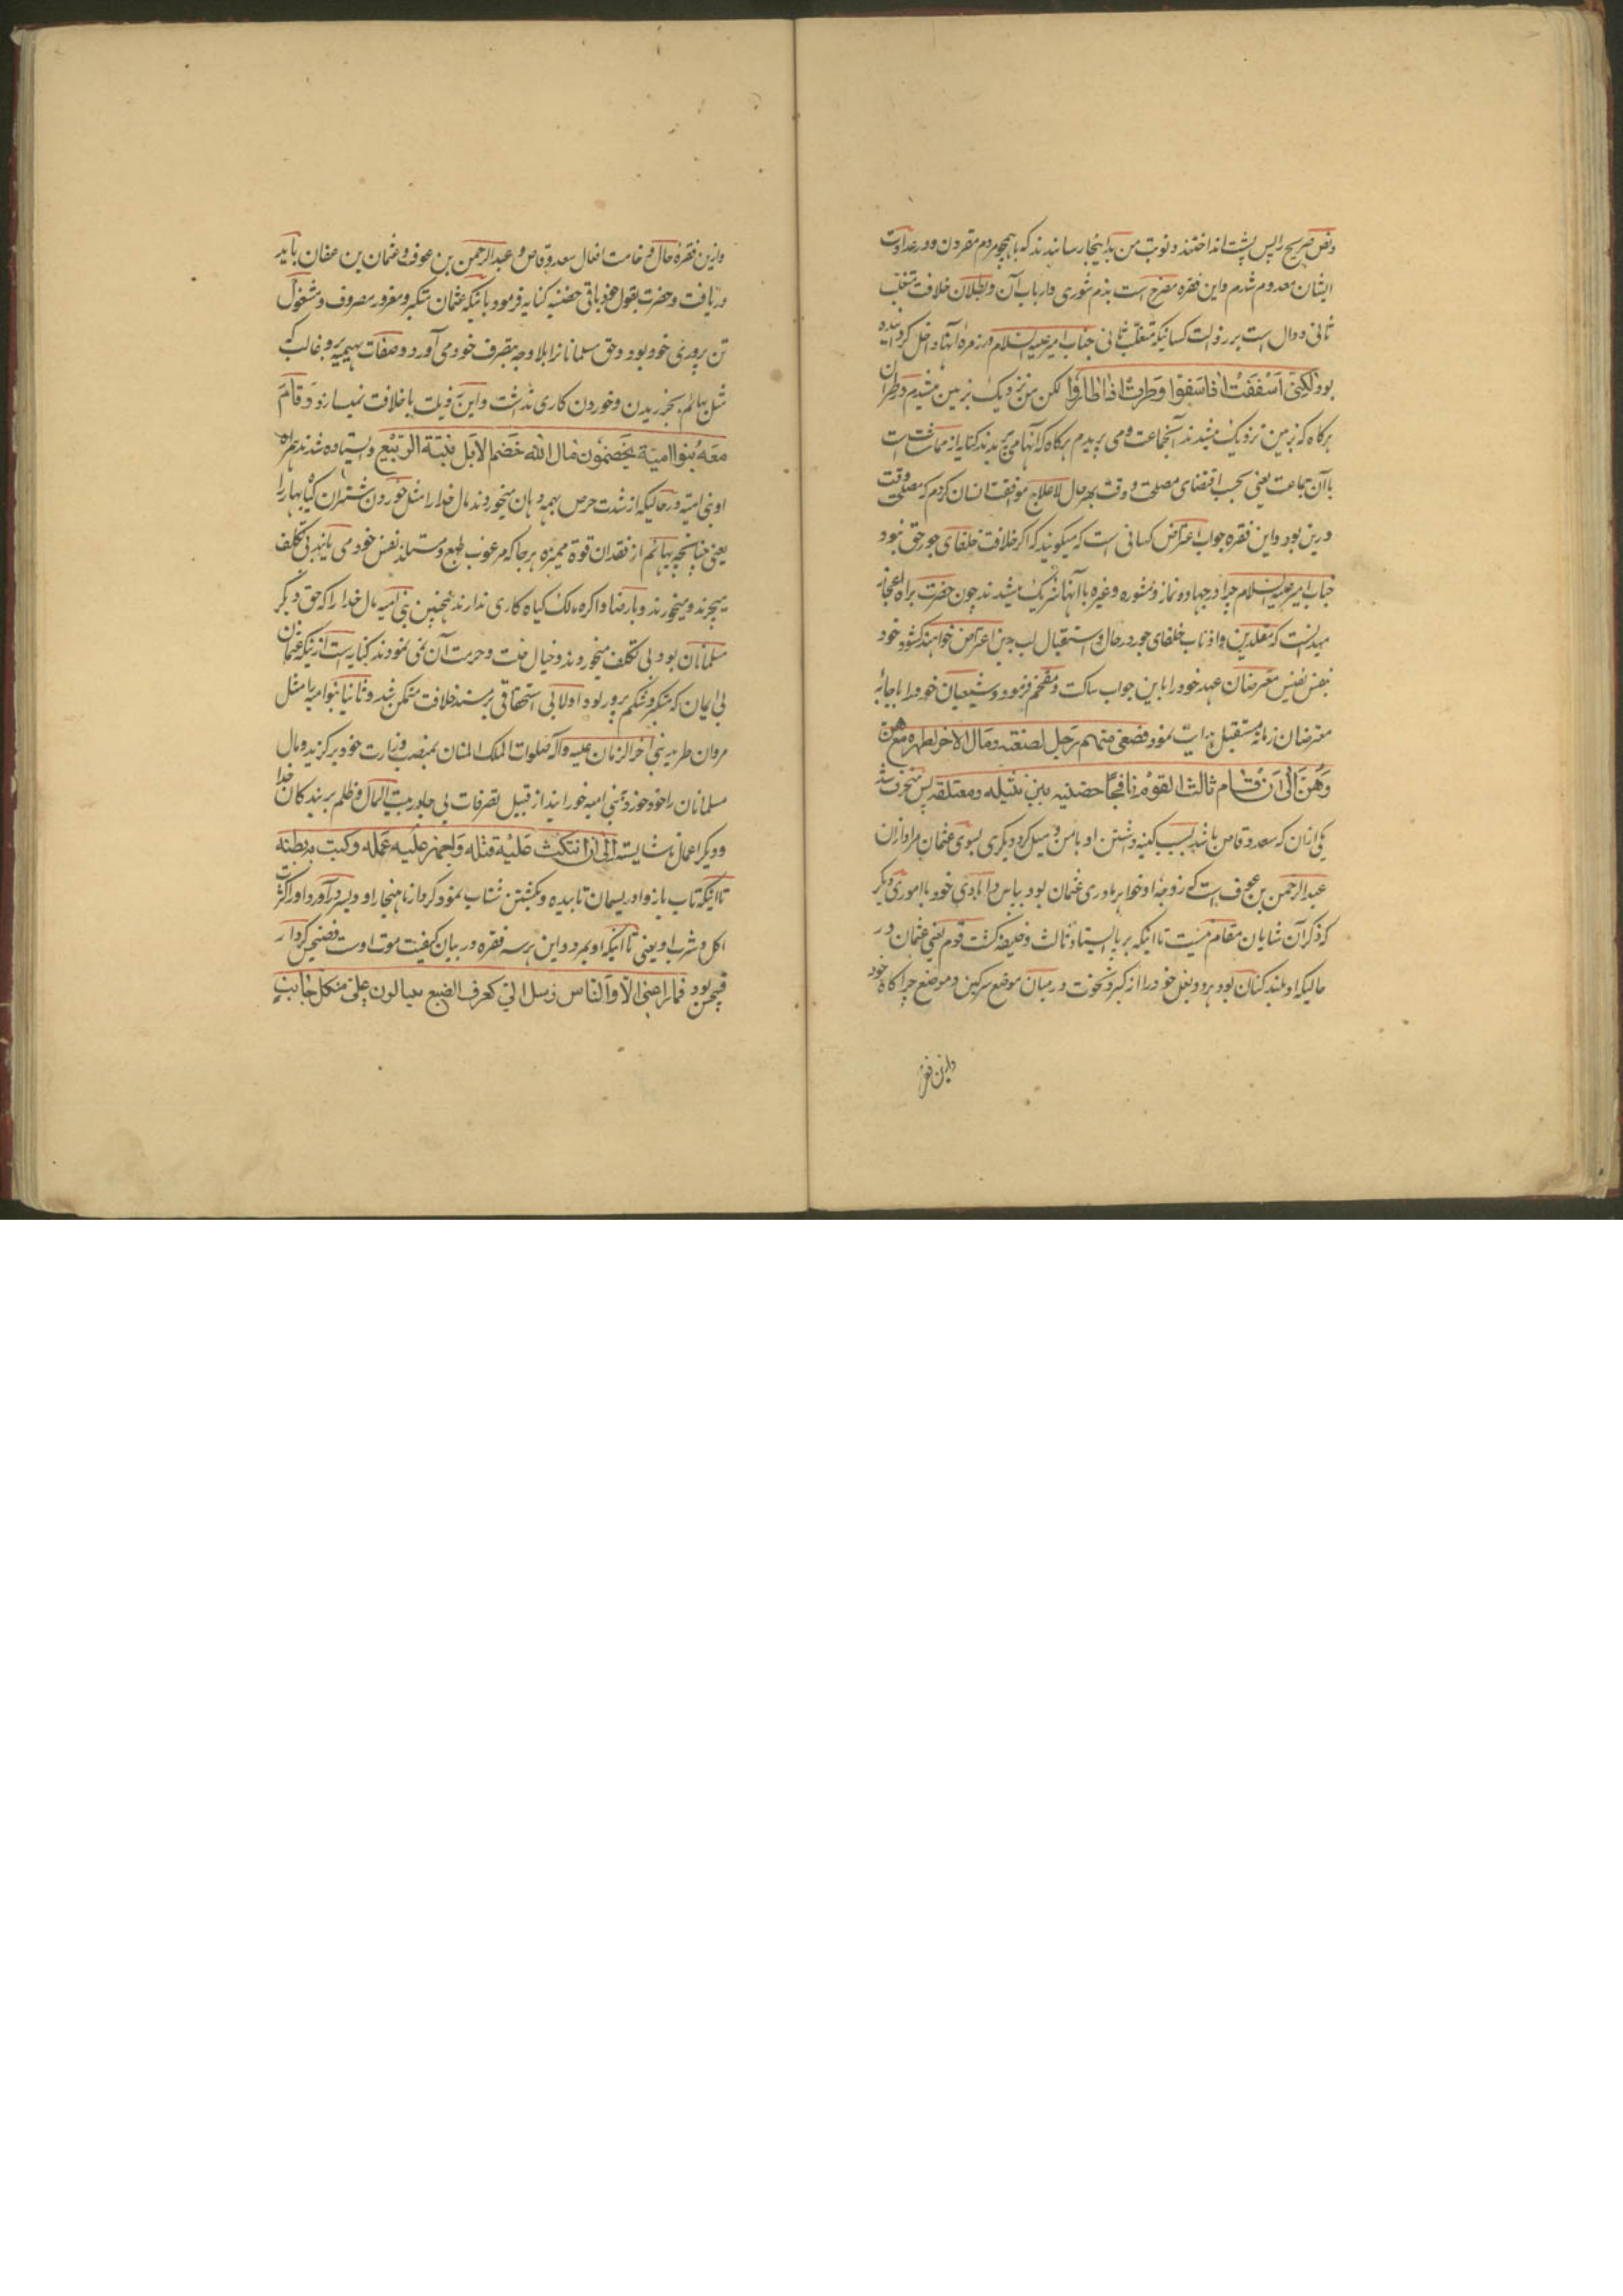 ونص صریح را پس پشت انداختند و نوبت من بداینجا رسانیدند که با همچو مردم مقرون و در عداوت
ایشان معدوم شدم و این فقره مصرح است بذم شوری و ارباب آن و بطلان خلافت متغلب
ثانی و دال است بر رذالت کسانیکه متغلب ثانی جناب امیر علیه السلام در زمره آنها داخل کردانیده
بود لکنی اسففت اذ اسفوا وطرت اذا طاروا لکن من نزدیک بزمین میشدم در طیران
هرکاه که بزمین نزدیک میشدند آنجماعت و می پریدم هرکاه که آنها می پریدند کنایه از مماشات است
با آن جماعت یعنی بحسب اقتضای مصلحت وقت بهر حال لاعلاج موافقت ایشان کردم که مصلحت وقت
درین بود و این فقره جواب اعتراض کسانی است که میکویند که اکر خلافت خلفای جور حق نبود
جناب امیر علیه السلام چرا در جهاد و نماز و مشوره و غیره با آنها شریک میشدند چون حضرت براه اعجاز
میدانست که مقلدین و اذناب خلفای جور در حال و استقبال لب بدین اعتراض خواهند کشود خود
بنفس نفیس معترضان عهد خود را باین جواب ساکت و مفحم فرمود و شیعیان خود را باجابه
معترضان زمانه مستقبل هدایت نمود فصغی منهم رجل لضغنه ومال الاخر لصهره مع هن
وهن الی ان قام ثالث القوم نافجا حضنیه بین نثیله ومعتلفه پس منحرف شد
یکی ازان که سعد وقاص باشد بسبب کینه داشتن او با من و میل کرد دیکری بسوی عثمان مراد ازان
عبد الرحمن بن عوف است که زوجه او خواهر مادری عثمان بود بپاس دامادی خود با اموری دیکر
که ذکر آن شایان مقام نیست تا اینکه برپا ایستاد ثالث و خلیفه کشت قوم یعنی عثمان در
حالیکه او بلند کنان بود هر دو بغل خود را از کبر و نخوت در میان موضع سرکین و موضع چراکاه خود
واین فقره
واین فقره حال وخامت افعال سعد وقاص و عبد الرحمن بن عوف و عثمان بن عفان باید
دریافت و حضرت بقول خود باقی حضنیه کنایه فرمود باینکه عثمان متکبر و مغرور مصروف و مشغول
تن پروری خود بود و حق مسلمانانرا بلا وجه بتصرف خود می آورد و صفات بهیمیه برو غالب که
مثل بهائم بجز ریدن و خوردن کاری نداشت و این رذیلت با خلافت نمیسازد وقام
معه بنوا امیة یخضمون مال الله خضم الابل نبتة الربیع و ایستاده شدند همراه
او بنی امیه در حالیکه از شدت حرص بهمه دهان میخوردند مال خدا را مثل خوردن شتران کیاه بهار را
یعنی چنانچه بهائم از فقدان قوة ممیزه هر جا که مرغوب طبع و مستلذ نفس خود می یابند بی تکلف
میچرند و میخورند و بارضا و اکراه مالک کیاه کاری ندارند همچنین بنی امیه مال خدا را که حق دیکر
مسلمانان بود بی تکلف میخوردند و خیال حلت و حرمت آن نمی نمودند کنایه است از اینکه عثمان
بی ایمان که متکبر و شکم پرور بود اولا بی استحقاقی بر مسند خلافت متمکن شد و ثانیا بنوامیه را مثل
مروان طرید نبی آخر الزمان علیه وآله صلوات الملک المنان بمنصب وزارت خود برکزید و مال
مسلمانان را خود خورد و بنی امیه خورانید از قبیل تصرفات بی جا در بیت المال و ظلم بر بندکان خدا
و دیکر اعمال ناشایسته الی ان انتکث علیه فتله واجهز علیه عمله وکبت به بطنته
تا اینکه تاب باز داد ریسمان تابیده و بکشتن شتاب نمود کردار ناهنجار او و بسر درآورد او را کثرت
اکل و شرب او یعنی تا اینکه او بمرد و این هر سه فقره در بیان کیفیت موت اوست فضیحی کردار
قبیحش بود فما راعنی الا والناس رسل الی کعرف الضبع ینثالون علی من کل جانب